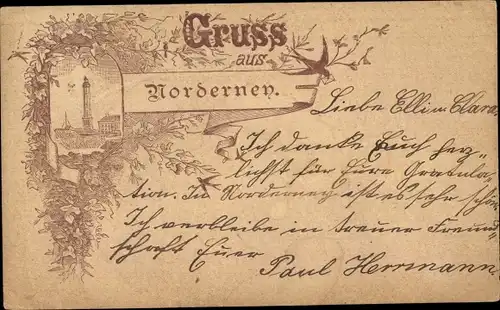 Gruss
aus
Norderney.
Liebe Elli u. Clara,
Ich danke Euch her-
lichst für Eure Gratula-
tion. In Norderney ist es sehr schön
Ich verbleibe in treuer Freund-
schaft Euer
Paul Herrmann